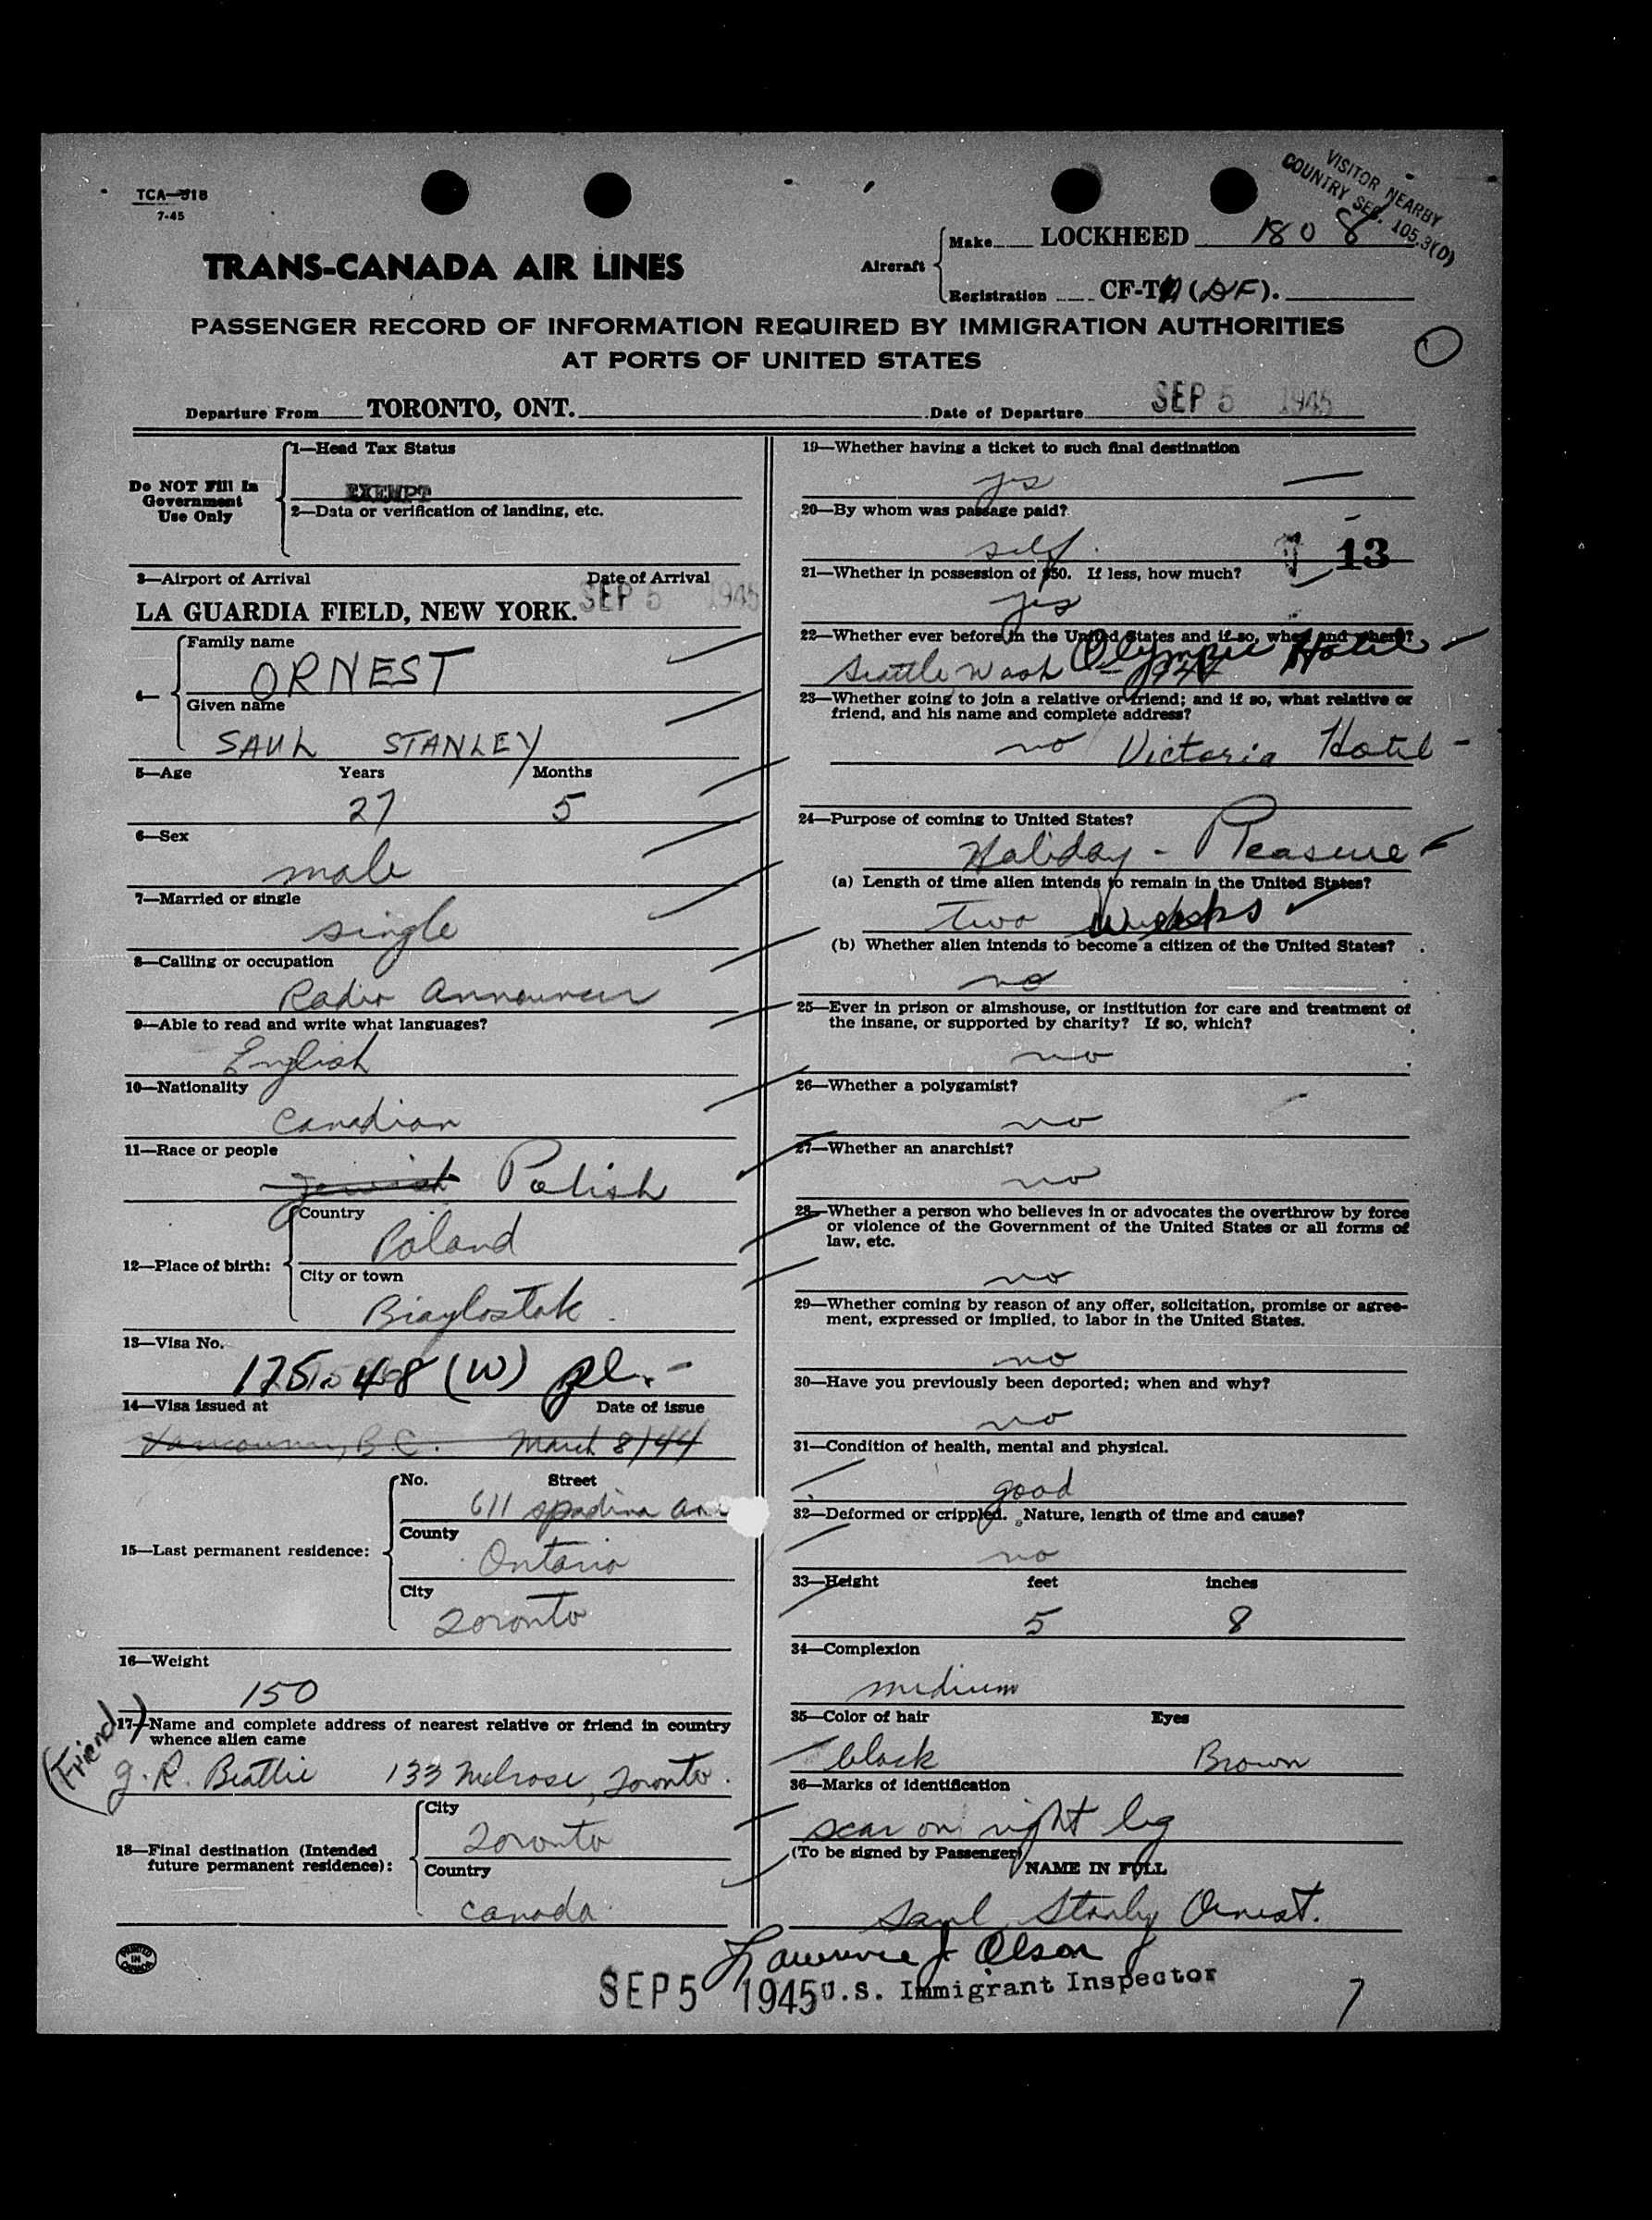 VISITOR NEARBY
COUNTRY SEC. 105.3(D)
TCA—318
7-45
TRANS-CANADA AIR LINES
Aircraft
Make LOCKHEED 1808
Registration CF-T (DF).
PASSENGER RECORD OF INFORMATION REQUIRED BY IMMIGRATION AUTHORITIES
AT PORTS OF UNITED STATES
Departure From TORONTO, ONT. Date of Departure SEP 5 1945
Do NOT Fill In
Government
Use Only
1—Head Tax Status
EXEMPT
2—Data or verification of landing, etc.
3—Airport of Arrival Date of Arrival
LA GUARDIA FIELD, NEW YORK. SEP 5 1945
4—
Family name
ORNEST
Given name
SAUL STANLEY
5—Age Years Months
27 5
6—Sex
male
7—Married or single
single
8—Calling or occupation
Radio Announcer
9—Able to read and write what languages?
English
10—Nationality
Canadian
11—Race or people
Jewish Polish
12—Place of birth:
Country
Poland
City or town
Biaylostok
13—Visa No.
175.48 (W) pl.-
14—Visa issued at Date of issue
Vancouver, B.C. March 8/44
15—Last permanent residence:
No. Street
611 Spadina
County
Ontario
City
Toronto
16—Weight
150
(Friend)
17—Name and complete address of nearest relative or friend in country
whence alien came
J. R. Beattie 133 Melrose, Toronto.
18—Final destination (Intended
future permanent residence):
City
Toronto
Country
Canada
PRINTED
IN
CANADA
19—Whether having a ticket to such final destination
yes
20—By whom was passage paid?
self.
13
21—Whether in possession of $50. If less, how much?
yes
22—Whether ever before in the United States and if so, when and where?
Seattle Wash Olympic Hotel
– 1944
23—Whether going to join a relative or friend; and if so, what relative or
friend, and his name and complete address?
no Victoria Hotel -
24—Purpose of coming to United States?
Holiday - Pleasure
(a) Length of time alien intends to remain in the United States?
two weeks
(b) Whether alien intends to become a citizen of the United States?
no
25—Ever in prison or almshouse, or institution for care and treatment of
the insane, or supported by charity? If so, which?
no
26—Whether a polygamist?
no
27—Whether an anarchist?
no
28—Whether a person who believes in or advocates the overthrow by force
or violence of the Government of the United States or all forms of
law, etc.
no
29—Whether coming by reason of any offer, solicitation, promise or agree-
ment, expressed or implied, to labor in the United States.
no
30—Have you previously been deported; when and why?
no
31—Condition of health, mental and physical.
good
32—Deformed or crippled. Nature, length of time and cause?
no
33—Height feet inches
5 8
34—Complexion
medium
35—Color of hair Eyes
black Brown
36—Marks of identification
scar on right leg
(To be signed by Passenger)
NAME IN FULL
Saul Stanley Ornest.
Lawrence J. Olson
SEP 5 1945 U.S. Immigrant Inspector
7